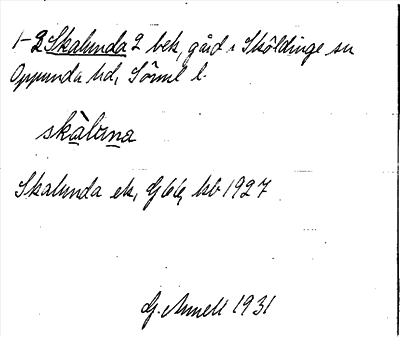 1-2 Skalunda 2 bek, gård i Sköldinge sn
Oppunda hd, Sörml l.
skàluna
Skalunda ek, G66, kb 1927
G. Annell 1931